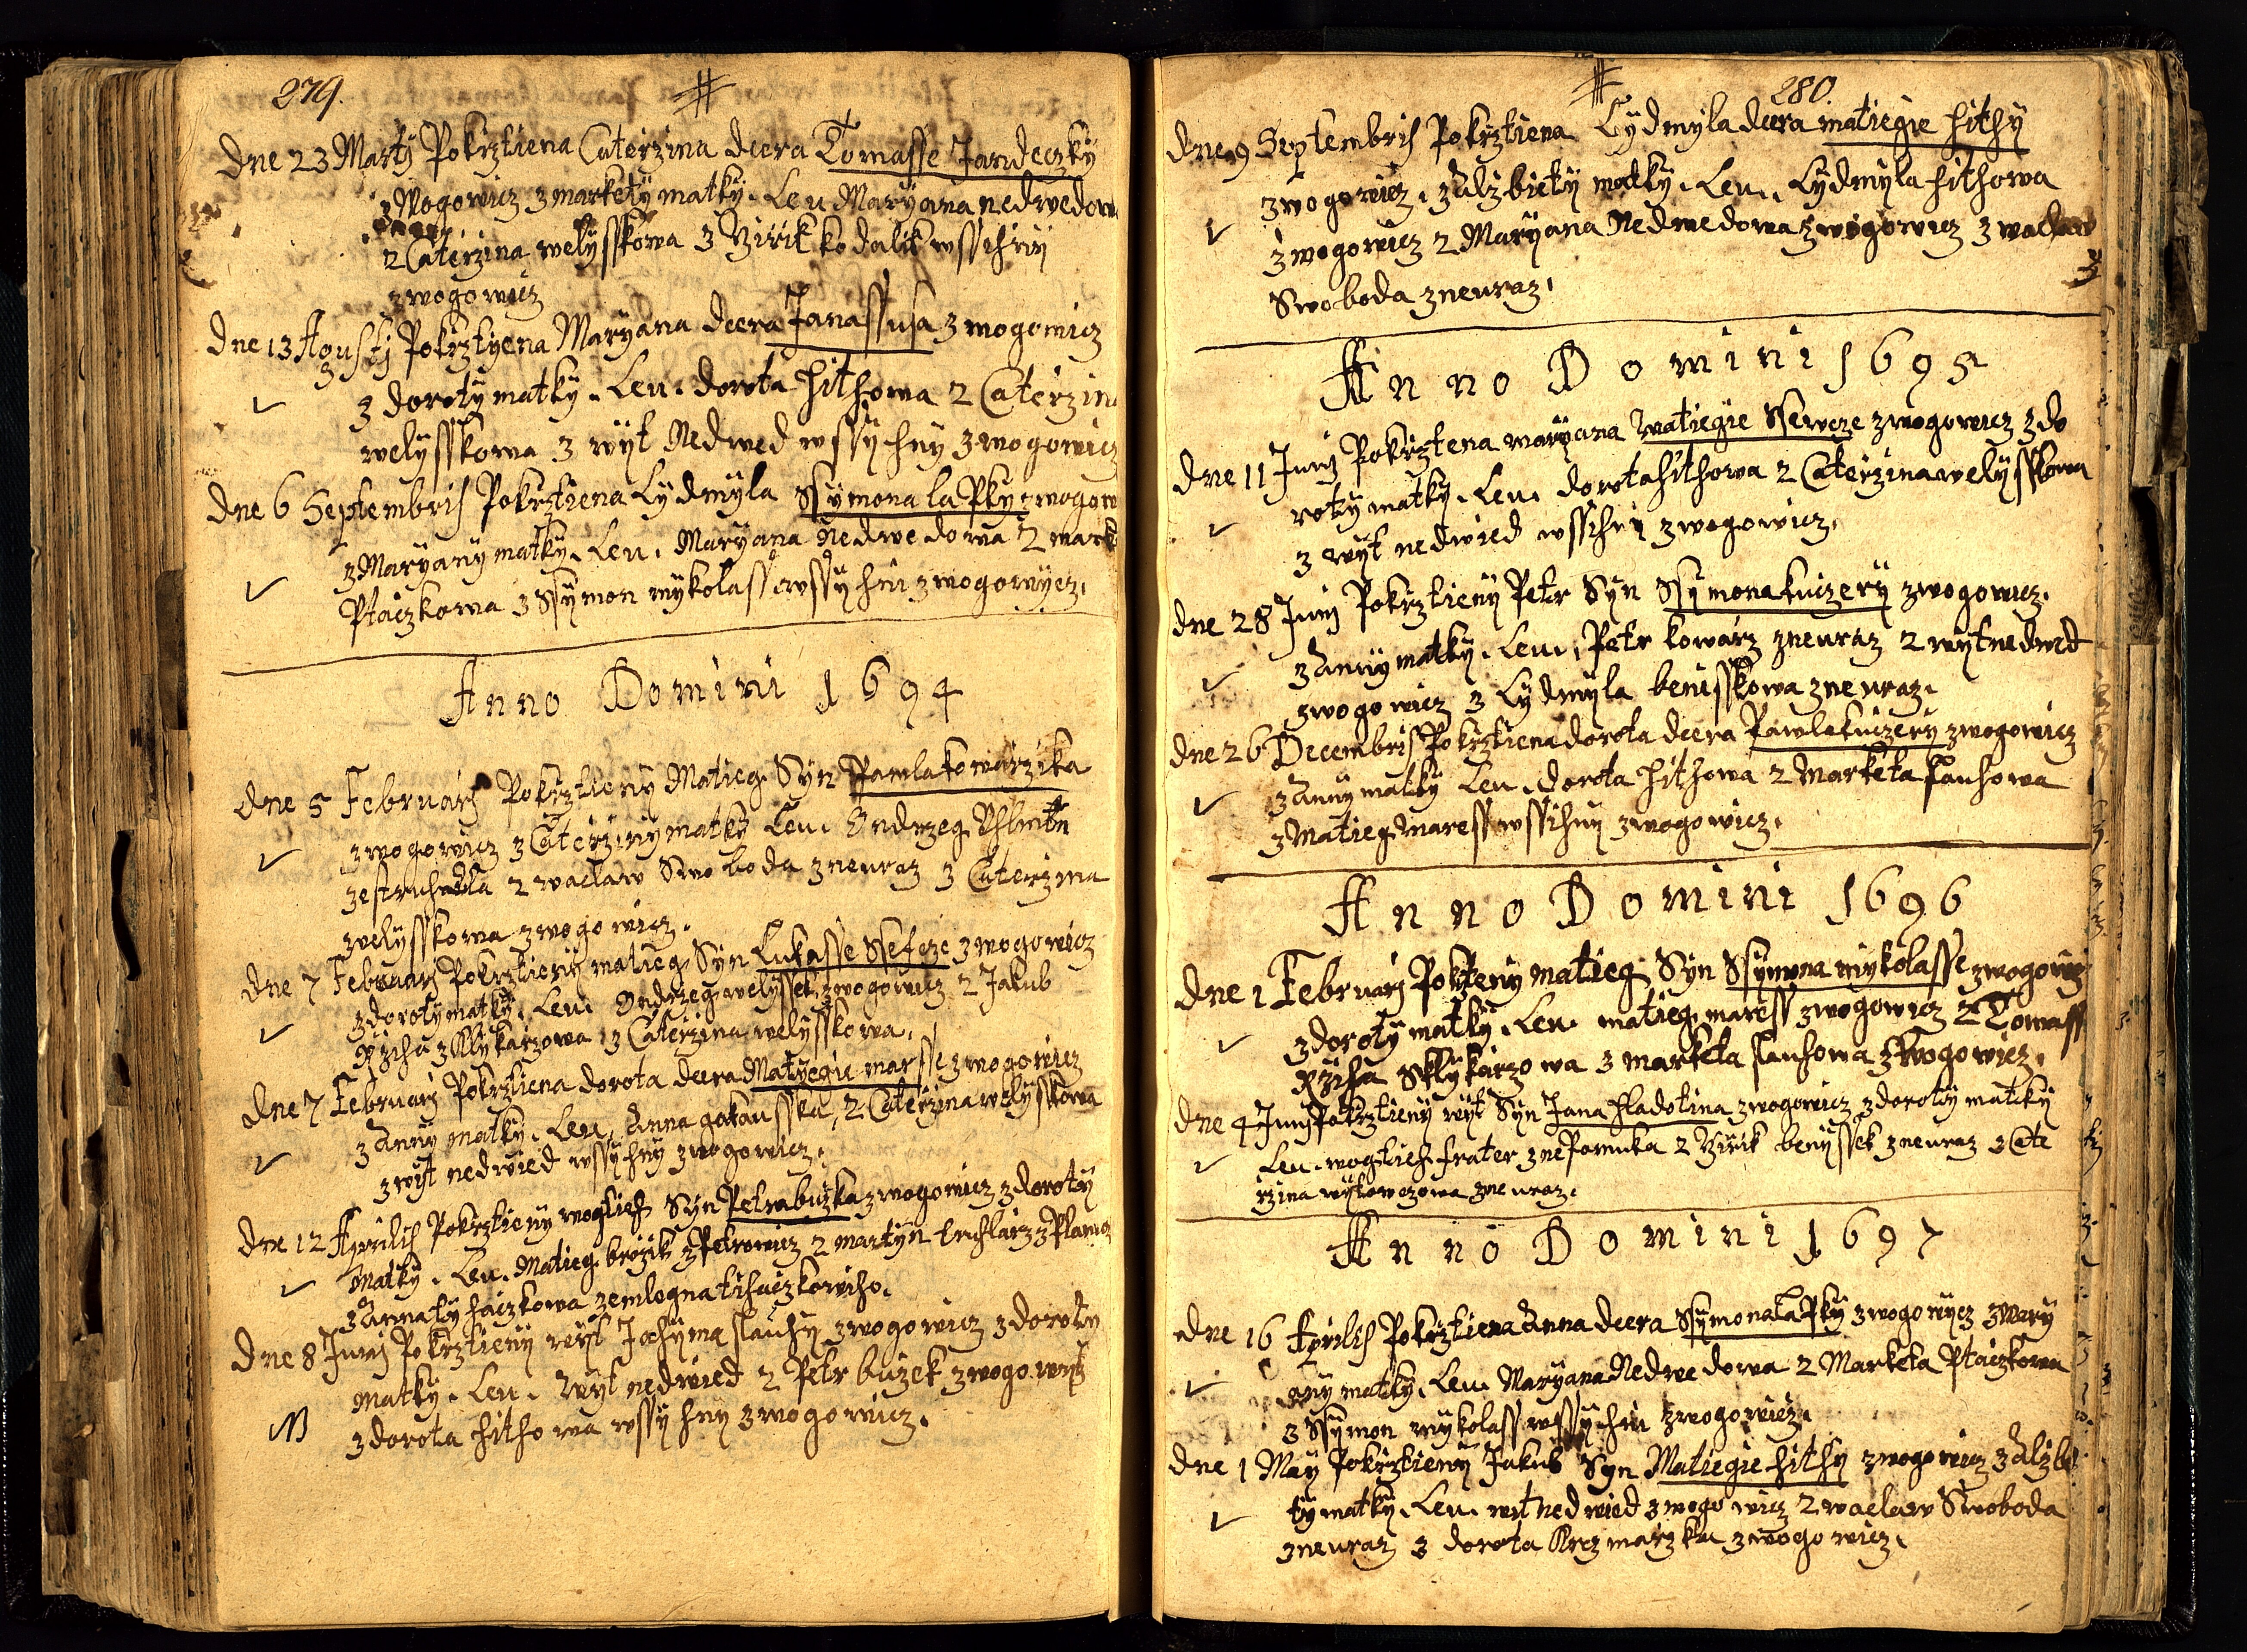 279.
Dne 23 Martj Pokrztiena Caterzina dcera Tomasse Jandeczky
z Wogowicz z markety matky. Leu Maryana nedwedowa
2 Caterzina welysskowa 3 Virik kodalik wssichni
zwogowicz
Dne 13 Agustj Pokrztyena Maryana dcera Jana ssusa zwogowicz
z doroty matky. Leu. dorota hithowa 2 Caterzina
welysskowa 3 wyt Nedwed wssychny zwogowicz
Dne 6 Septembris Pokrztiena Lydmyla Ssymona laPky zwogow
z Maryany matky. Leu. Maryana Nedwedowa 2 mark
Ptaczkowa 3 Ssymon mykolass wssychni zwogowycz.
Anno Domini 1694
Dne 5 Februarj Pokrztieny Matieg Syn Pawla kowarzika
zwogowicz z Caterziny matky Leu. Ondrzeg
2 waclaw Swoboda zneuraz 3 Caterzina
welysskowa zwogowicz.
Dne 7 Februarj Pokrztieny matieg Syn Lukasse Ssefcze zwogowicz
z doroty matky. Leu. Ondrzeg welyssek zwogowicz 2 Jakub
Rziha z Klykarzowa 3 Caterzina welysskowa.
Dne 7 Februarj Pokrztiena dorota dcera Matyegie marsse zwogowicz
z Anny matky. Leu. Anna gakausska, 2 Caterzina welysskowa
3 wyt nedwied wssychny zwogowicz.
Dne 12 Aprilis Pokrztieny wogtieh Syn Petra buzka zwogowicz z doroty
Matky. Leu. Matieg brozik z Petrowicz 2 martyn truhlarz z Plan
3 Anna tyhaczkowa zemlogna tihaczkowiho.
Dne 8 Junj Pokrztieny wyt Jachyma slauhy zwogowicz z doroty
matky. Leu. Wyt nedwied 2 Petr buzek zwogowicz
3 dorota hithowa wssychny zwogowicz.
280.
Dne 9 Septembris Pokrztiena Lydmyla dcera matiegie hithy
zwogowicz. z Alzbiety matky. Leu. Lydmyla hithowa
zwogowicz 2 Maryana Nedwedowa zwogowicz 3 waclaw
Swoboda zneuraz.
Anno Domini 1695
Dne 11 Junj Pokrztena maryana Matiegie Ssewcze zwogowicz z do
roty matky. Leu. dorota hithowa 2 Caterzina welysskowa
3 wyt nedwied wssichni zwogowicz.
Dne 28 Junj Pokrztieny Petr Syn Ssymona kuczery zwogowicz.
z Anny matky. Leu. Petr kowarz zneuraz 2 wyt nedwed
zwogowicz 3 Lydmyla benisskowa zneuraz.
Dne 26 Decembris Pokrztiena dorota dcera Pawla kuczery zwogowicz
z Anny matky Leu. dorota hithowa 2 Marketa slauhowa
3 Matieg maress wssihny zwogowicz.
Anno Domini 1696
Dne 1 Februarj Pokrteny Matieg Syn Ssymona mykolasse zwogowicz
z doroty matky. Leu. matieg maress zwogowicz 2 Tomass
Rziha Sklykarzowa 3 marketa slauhowa z Wogowicz.
Dne 4 Junj Pokrztieny wyt Syn Jana hladotina zwogowicz z doroty matky
Leu. wogtieh frater z nePomuka 2 Virik benyssek zneuraz 3 Cate
rzina wytowczowa zneuraz.
Anno Domini 1697
Dne 16 Aprilis Pokrztiena Anna dcera Ssymona laPky zwogowycz z Mary
any matky. Leu. Maryana Nedwedowa 2 Marketa Ptaczkowa
3 Ssymon mykolass wssychni zwogowicz.
Dne 1 May Pokrztieny Jakub Syn Matiegie hithy zwogowicz z Alzbe
ty matky. Leu. wit nedwied zwogowicz 2 waclaw Swoboda
zneuraz 3 dorota Krczmarzka zwogowicz.